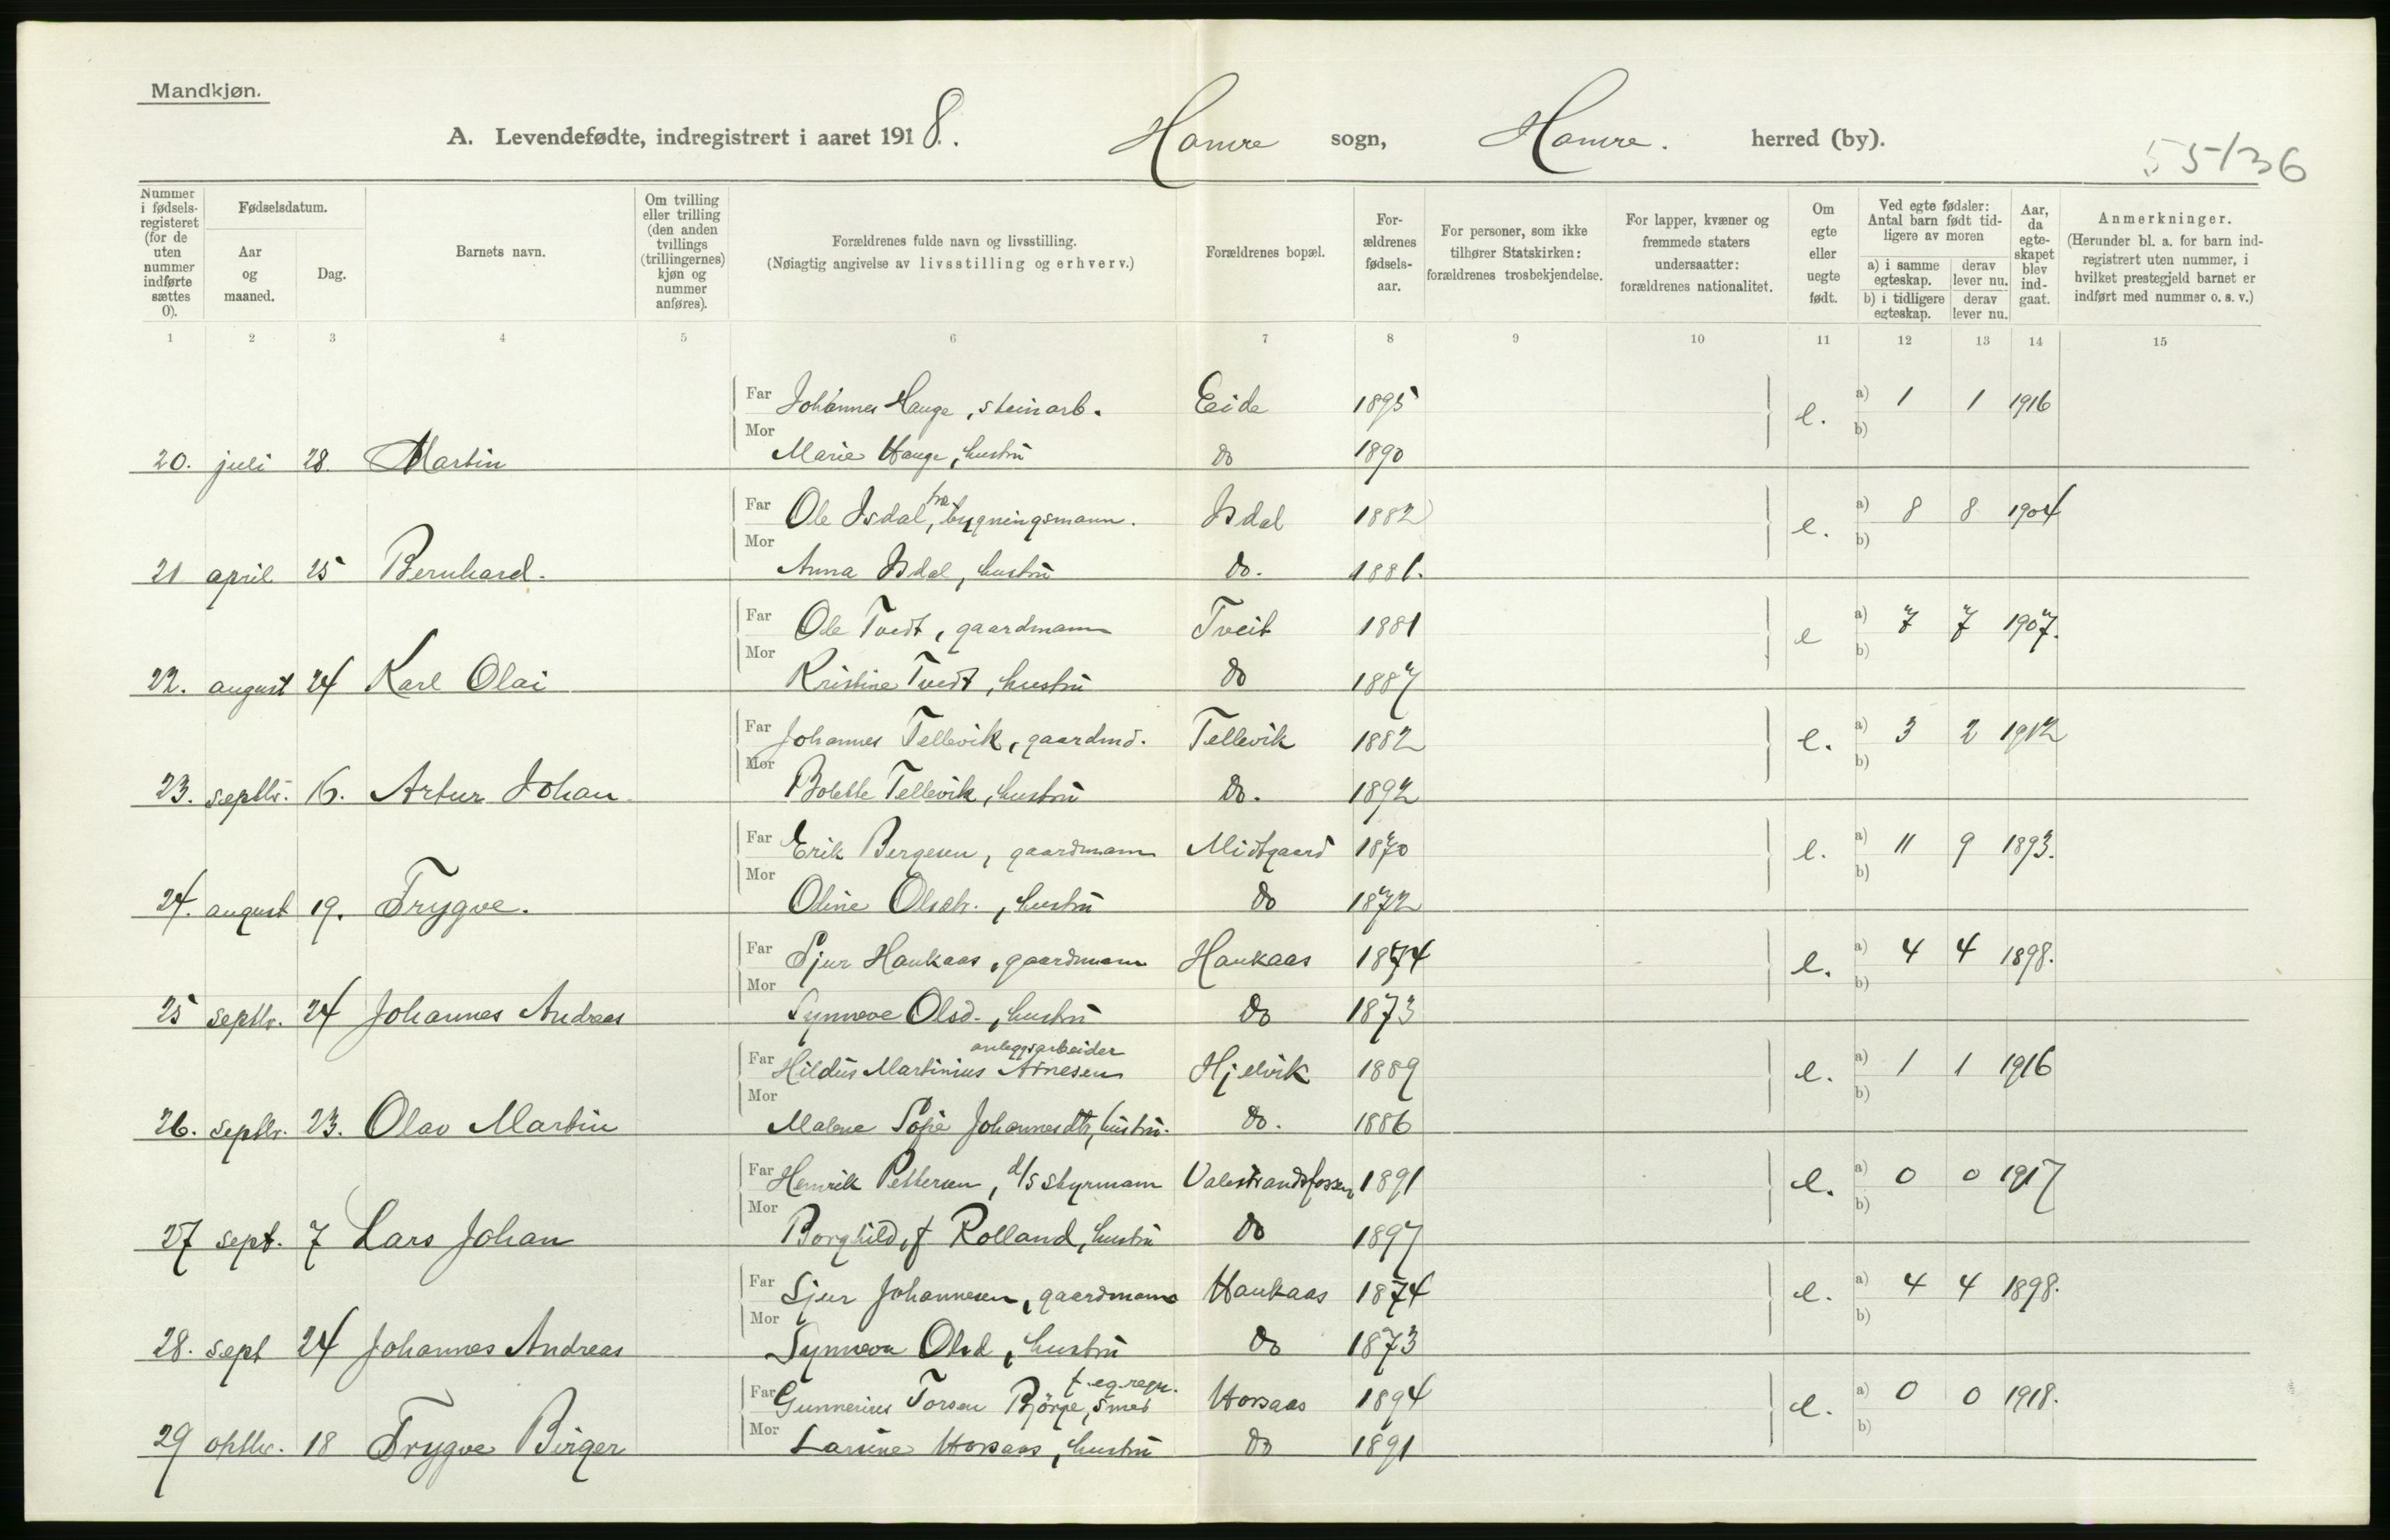 Mandkjøn.
A. Levendefødte, indregistrert i aaret 1918. Hamre sogn, Hamre. herred (by).
55/36
Nummer i fødsels-registeret (for de uten nummer indførte sættes 0).
Fødselsdatum.
Aar og maaned.
Dag.
Barnets navn.
Om tvilling eller trilling (den anden tvillings (trillingernes) kjøn og nummer anføres).
Forældrenes fulde navn og livsstilling.
(Nøiagtig angivelse av livsstilling og erhverv.)
Forældrenes bopæl.
For-ældrenes fødsels-aar.
For personer, som ikke tilhører Statskirken: forældrenes trosbekjendelse.
For lapper, kvæner og fremmede staters undersaatter: forældrenes nationalitet.
Om egte eller uegte født.
Ved egte fødsler: Antal barn født tid-ligere av moren
a) i samme egteskap.
derav lever nu.
b) i tidligere egteskap.
derav lever nu.
Aar, da egte-skapet blev ind-gaat.
Anmerkninger.
(Herunder bl. a. for barn ind-registrert uten nummer, i hvilket prestegjeld barnet er indført med nummer o. s. v.)
1 2 3 4 5 6 7 8 9 10 11 12 13 14 15
Far Johannes Hauge, steinarb. Eide 1895 e. a) 1 1 1916
b)
20. juli 28. Martin Mor Marie Hauge, hustru do 1890
Far Ole Isdal, fra bygningsmann. Isdal 1882 e. a) 8 8 1904
b)
21 april 25 Bernhard. Mor Anna Isdal, hustru do. 1881.
Far Ole Tvedt, gaardmann Tveit 1881 e a) 7 7 1907.
b)
22. august 24 Karl Olai Mor Kristine Tvedt, hustru do 1887
Far Johannes Tellevik, gaardmd. Tellevik 1882 e. a) 3 2 1912
b)
23. septbr. 16. Artur Johan Mor Bolette Tellevik, hustru do. 1892
Far Erik Bergesen, gaardmann Midtgaard 1870 e. a) 11 9 1893.
b)
24. august 19. Trygve. Mor Oline Olsdtr., hustru do 1872
Far Sjur Haukaas, gaardmann Haukaas 1874 e. a) 4 4 1898.
b)
25 septbr. 24 Johannes Andreas Mor Synneve Olsd., hustru do 1873
anleggsarbeider
Far Hildus Martinius Arnesen Hjelvik 1889 e. a) 1 1 1916
b)
26. septbr. 23. Olav Martin Mor Malene Sofie Johannesdtr, hustru. do. 1886
Far Henrik Pettersen, d/s styrmann Valestrandsfossen 1891 e. a) 0 0 1917
b)
27 sept. 7 Lars Johan Mor Borghild, f Rolland, hustru do 1897
Far Sjur Johannesen, gaardmann Haukaas 1874 e. a) 4 4 1898.
b)
28. sept 24 Johannes Andreas Mor Synneva Olsd, hustru do 1873
f. eg. regn.
Far Gunnerius Torsen Bjørge, smed Horsaas 1894 e. a) 0 0 1918.
b)
29 oktbr. 18 Trygve Birger Mor Larsine Horsaas, hustru do 1891